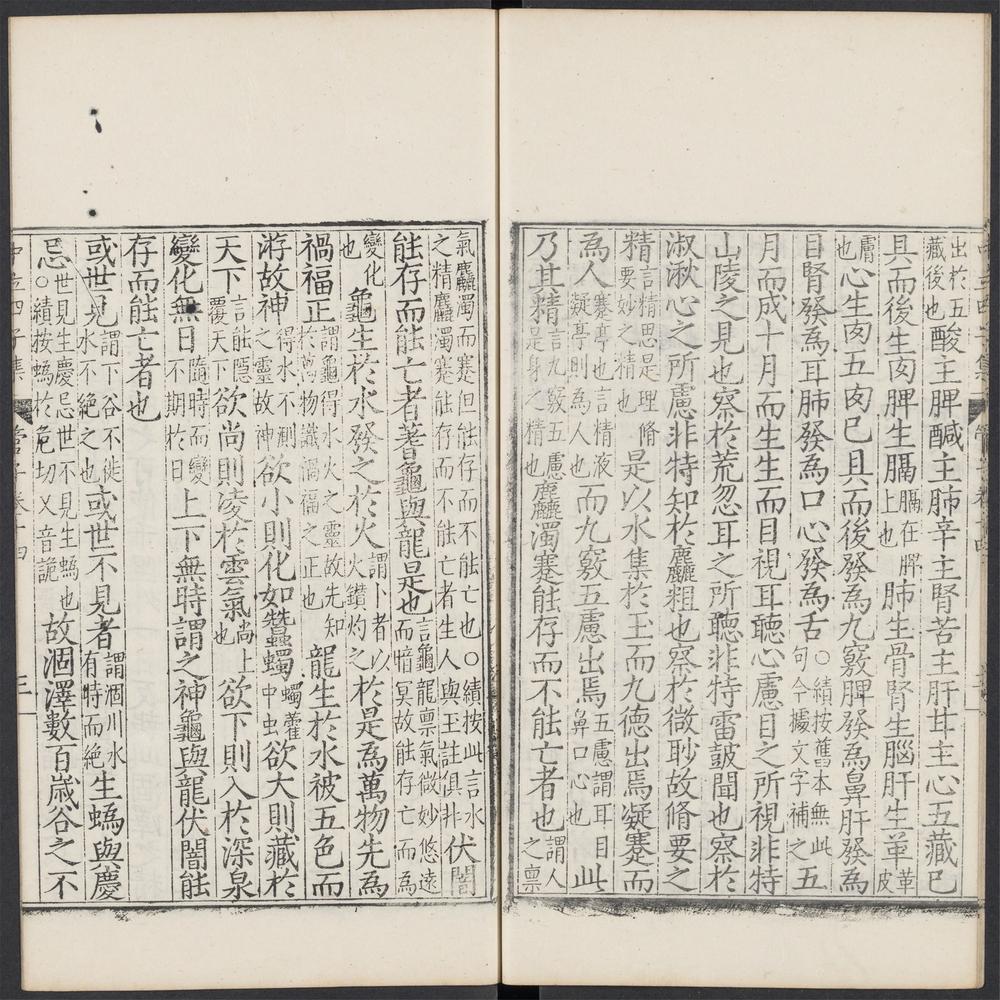 出於五藏後也酸主脾鹹主肺辛主腎苦主肝甘主心五藏已
具而後生肉脾生膈膈在脾上也肺生骨腎生腦肝生革革皮
膚也心生肉五肉已具而後發為九竅脾發為鼻肝發為
目腎發為耳肺發為口心發為舌○績按舊本無此句今據文字補之五
月而成十月而生生而目視耳聽心慮目之所視非特
山陵之見也察於荒忽耳之所聽非特雷鼓聞也察於
淑湫心之所慮非特知於麤粗也察於微眇故脩要之
精言精思是理脩要妙之精也是以水集於玉而九德出焉凝蹇而
為人蹇亭也言精液凝亭則為人也而九竅五慮出焉五慮謂耳目鼻口心也此
乃其精言九竅五慮是身之精也麤濁蹇能存而不能亡者也謂人之稟
氣麤濁而蹇但能存而不能亡也○績按此言水之精麤濁蹇能存而不能亡者生人與玉註俱非伏闇
能存而能亡者蓍龜與龍是也言龜龍稟氣微妙悠遠而暗冥故能存亡而為
變化也龜生於水發之於火謂卜者以火鑽灼之於是為萬物先為
禍福正謂龜得水火之靈故先知於萬物識禍福之正也龍生於水被五色而
游故神得水不涸之靈故神欲小則化如蠶蠋蠋藿中虫欲大則藏於
天下言能隱覆天下欲尚則凌於雲氣尚上也欲下則入於深泉
變化無日隨時而變不期於日上下無時謂之神龜與龍伏闇能
存而能亡者也
或世見謂下谷不徙水不絕之也或世不見者謂涸川水有時而絕生蟡與慶
忌世見生慶忌世不見生蟡也○績按蟡於危切又音詭故涸澤數百歲谷之不
中立四子集 管子卷十四 三